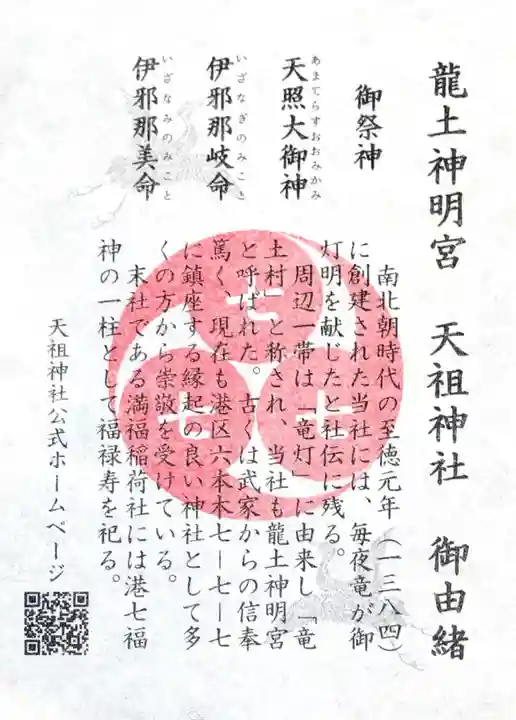 龍土神明宮　天祖神社　御由緒
御祭神
天照大御神
あまてらすおおみかみ
伊邪那岐命
いざなぎのみこと
伊邪那美命
いざなみのみこと
南北朝時代の至徳元年（一三八四）
に創建された当社には、毎夜竜が御
灯明を献じたと社伝に残る。
周辺一帯は「竜灯」に由来し「竜
土村」と称され、当社も龍土神明宮
と呼ばれた。古くは武家からの信奉
篤く、現在も港区六本木七ー七ー七
に鎮座する縁起の良い神社として多
くの方から崇敬を受けている。
末社である満福稲荷社には港七福
神の一柱として福禄寿を祀る。
天祖神社公式ホームページ